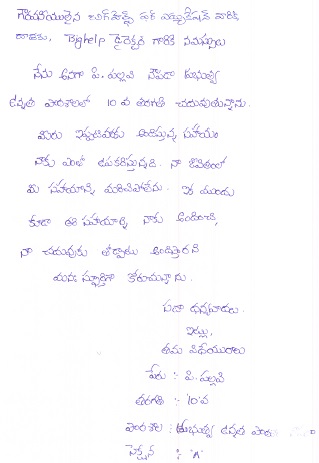 గౌరవనీయులైన బిగ్ హెల్ప్ ఫర్ ఎడ్యుకేషన్ వారికి,
Bighelp డైరెక్టర్ గారికి నమస్సులు
నేను అనగా పి. పల్లవి ప్రభుత్వ
ఉన్నత పాఠశాలలో 10 వ తరగతి చదువుతున్నాను.
మీరు ఇప్పటివరకు అందిస్తున్న సహాయం
నాకు ఎంతో ఉపకరిస్తున్నది. నా జీవితంలో
మీ సహాయాన్ని మరిచిపోలేను. ఇక ముందు
కూడా ఈ సహాయాన్ని నాకు అందించి,
నా చదువుకు తోడ్పాటు అందిస్తారని
మనః స్ఫూర్తిగా కోరుచున్నాను.
సదా ధన్యవాదాలు.
ఇట్లు,
తమ విధేయురాలు
పేరు : పి. పల్లవి
తరగతి : 10 వ
పాఠశాల : ప్రభుత్వ ఉన్నత పాఠ
సెక్షన్ : 'A'